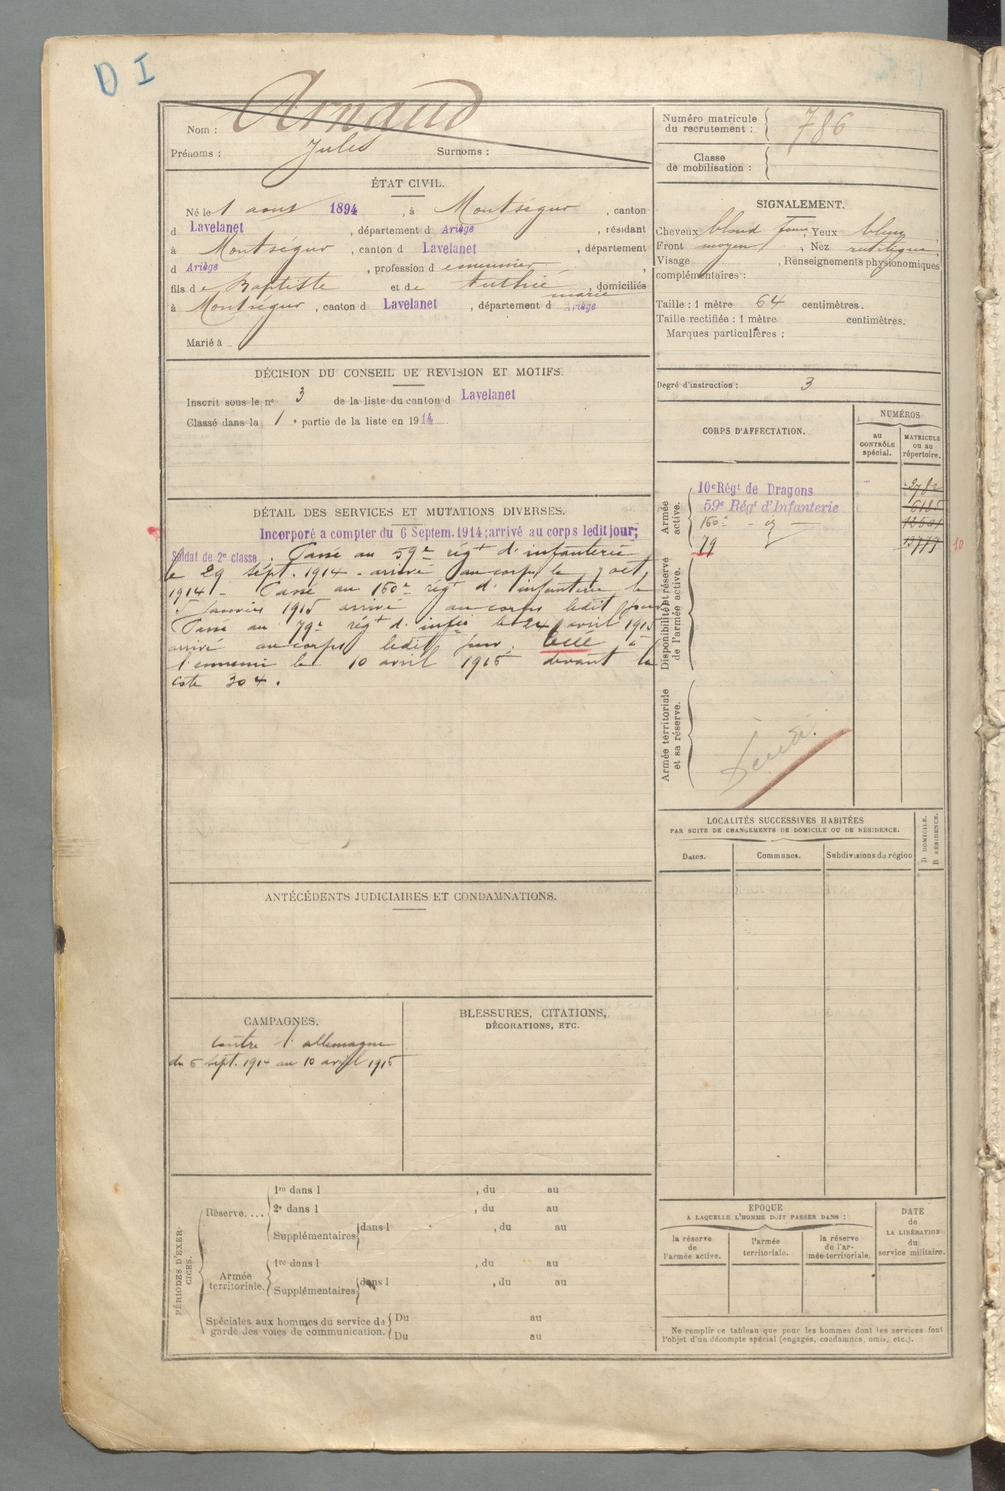 D I
Nom : Arnaud
Prénoms : Jules Surnoms :
ÉTAT CIVIL.
Né le 1 aout 1894, à Montségur, canton
d Lavelanet, département d Ariège, résidant
à Montségur, canton d Lavelanet, département
d Ariège, profession de meunier
fils de Baptiste et de Authié marie, domiciliés
à Montségur, canton d Lavelanet, département d Ariège
Marié à
DÉCISION DU CONSEIL DE REVISION ET MOTIFS.
Inscrit sous le n° 3 de la liste du canton d Lavelanet
Classé dans la 1 e partie de la liste en 1914
DÉTAIL DES SERVICES ET MUTATIONS DIVERSES.
Incorporé a compter du 6 Septem. 1914; arrivé au corps ledit jour;
Soldat de 2e classe. Passé au 59e régt d'infanterie
le 29 sept. 1914 - arrivé au corps le 7 oct
1914 - Passé au 160e régt d'infanterie le
5 Janvier 1915 arrivé au corps ledit jour
Passé au 79e régt d'infie le 24 avril 1915
arrivé au corps ledit jour. Tué à
l'ennemi le 10 avril 1916 devant la
cote 304.
ANTÉCÉDENTS JUDICIAIRES ET CONDAMNATIONS.
CAMPAGNES.
contre l'allemagne
du 6 sept. 1914 au 10 avril 1916
BLESSURES, CITATIONS,
DÉCORATIONS, ETC.
PÉRIODES D'EXERCICES.
Réserve....
1re dans l , du au
2e dans l , du au
Supplémentaires dans l , du au
Armée territoriale.
1re dans l , du au
Supplémentaires dans l , du au
Spéciales aux hommes du service de garde des voies de communication.
Du au
Du au
Numéro matricule du recrutement : 786
Classe de mobilisation :
SIGNALEMENT.
Cheveux blond foncé, Yeux bleus
Front moyen, Nez rectiligne
Visage , Renseignements physionomiques
complémentaires :
Taille : 1 mètre 64 centimètres.
Taille rectifiée : 1 mètre centimètres.
Marques particulières :
Degré d'instruction : 3
CORPS D'AFFECTATION.
NUMÉROS
au CONTRÔLE spécial.
MATRICULE ou au répertoire.
Armée active.
10e Régt de Dragons
59e Régt d'Infanterie
160e - d° -
79
10
Disponibilité et réserve de l'armée active.
Armée territoriale et sa réserve.
LOCALITÉS SUCCESSIVES HABITÉES
PAR SUITE DE CHANGEMENTS DE DOMICILE OU DE RÉSIDENCE.
Dates.
Communes.
Subdivisions de région
D DOMICILE.
R RÉSIDENCE.
EPOQUE
A LAQUELLE L'HOMME DOIT PASSER DANS :
la réserve de l'armée active.
l'armée territoriale.
la réserve de l'armée territoriale.
DATE de LA LIBÉRATION du service militaire.
Ne remplir ce tableau que pour les hommes dont les services font
l'objet d'un décompte spécial (engagés, condamnés, omis, etc.).